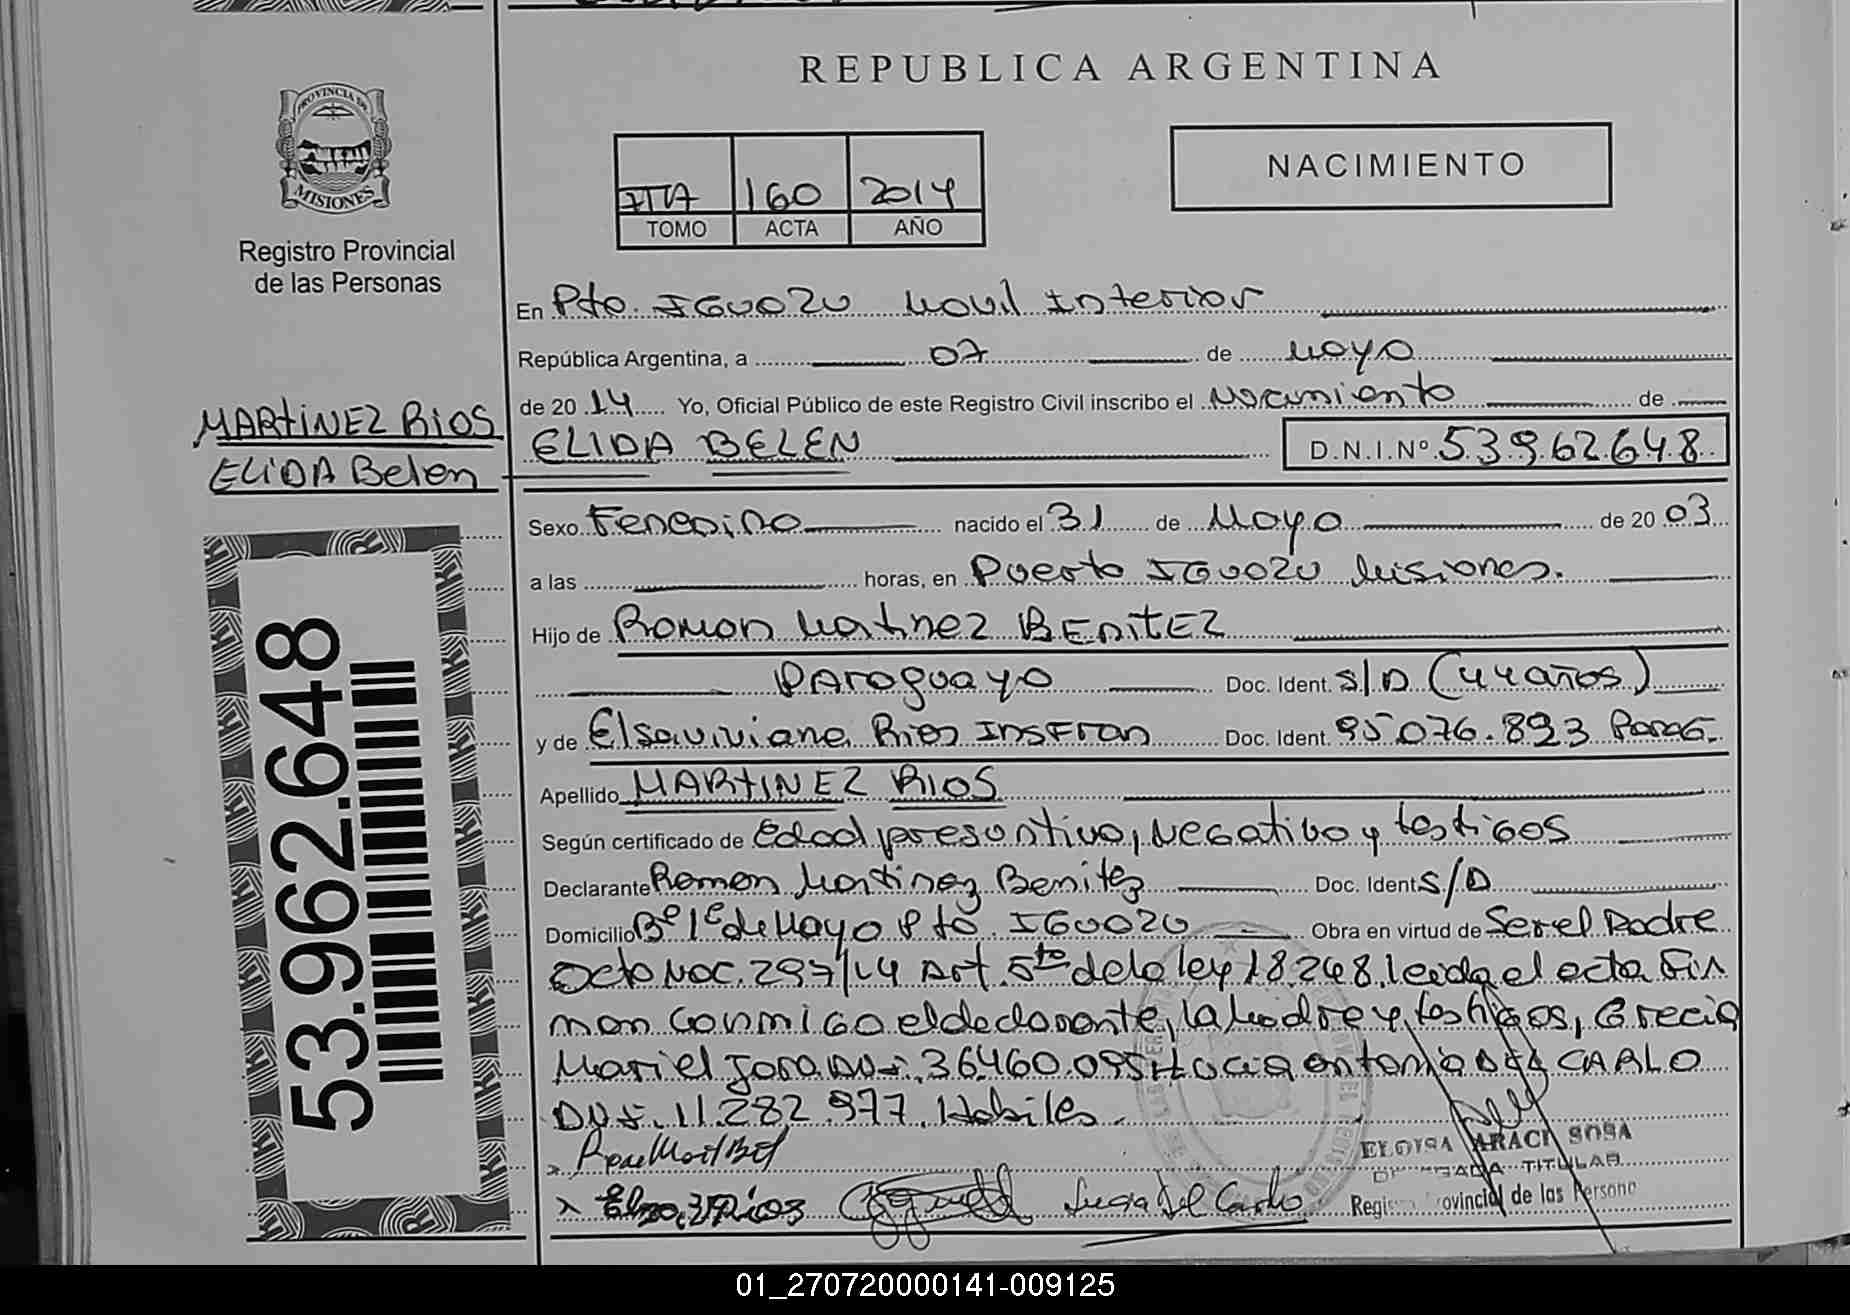 REPUBLICA ARGENTINA
PROVINCIA DE
MISIONES
Registro Provincial
de las Personas
160 2014
TOMO ACTA AÑO
NACIMIENTO
En Pto. IGUAZU Movil Interior
República Argentina, a 07 de Mayo
de 20 14 Yo, Oficial Público de este Registro Civil inscribo el Nacimiento de
MARTINEZ RIOS
ELIDA Belen
ELIDA BELEN D.N.I.Nº 53962648
Sexo Femenino nacido el 31 de Mayo de 20 03
a las horas, en Puerto IGUAZU Misiones.
Hijo de Ramon Matinez BENITEZ
PAraguayo Doc. Ident. S/D (44 años)
y de Elsa viviana Rios INSFRAN Doc. Ident. 95.076.893 PARAG.
Apellido MARTINEZ RIOS
Según certificado de Edad presuntiva, Negativo y testigos
Declarante Ramon Martinez Benitez Doc. Ident S/D
Domicilio Bº 1º de Mayo Pto. IGUAZU Obra en virtud de Ser el Padre
Acto Nac. 297/14 Art. 5to de la ley 18.248. leida el acta Fir
man conmigo el declarante, la Madre y testigos, Grecia
Mariel Jara DNI. 36.460.095 Lucia antonia DEL CARLO
DNI. 11.282.977. Habiles.
ELOISA ARACI SOSA
DELEGADA TITULAR
Registro Provincial de las Persona
Elsa V Rios Lucia del Carlo
53.962.648
01_270720000141-009125